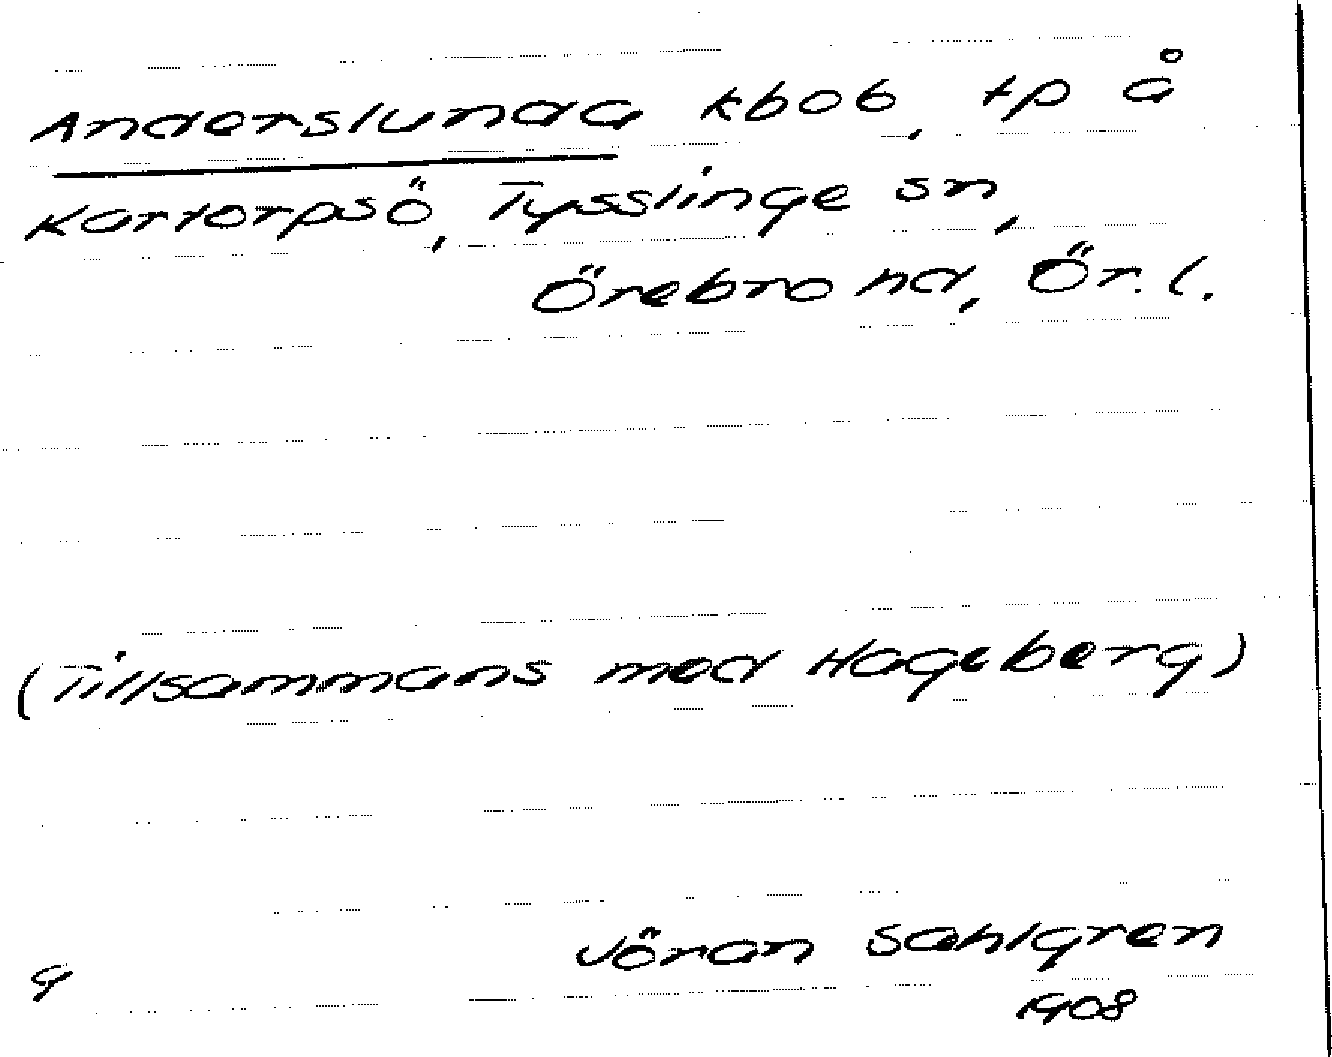 Anderslunda kbob, tp å
Kartorpsö, Tysslinge sn,
Örebro hd, Ör. l.
(Tillsammans med Hageberg)
Jöran Sahlgren
1908